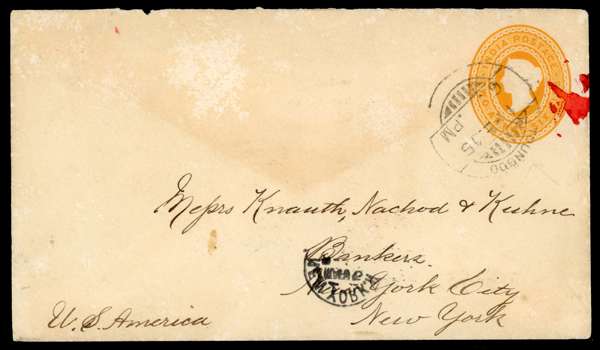 INDIA POSTAGE
P.M
Messrs Knauth, Nachod & Kuhne
Bankers.
NEW YORK
New York City
U.S. America
New York